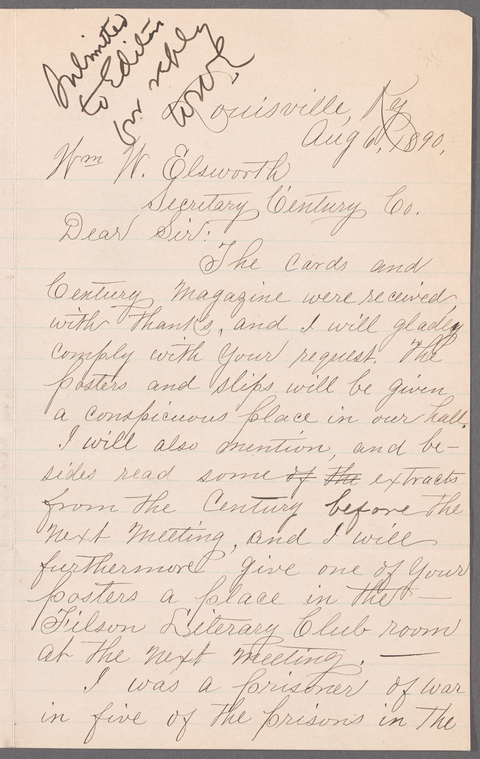 Submitted
to Editor
for reply
WWE
Louisville, Ky
Aug 6, 1890,
Wm W. Elsworth
Secretary Century Co.
Dear Sir:
The cards and
Century Magazine were received,
with thanks, and I will gladly
comply with your request. The
posters and slips will be given
a conspicuous place in our hall.
I will also mention, and be-
sides read some of the extracts
from the Century before the
next meeting, and I will
furthermore give one of your
posters a place in the —
Filson Literary Club room
at the next meeting. —
I was a prisoner of war
in five of the prisons in the